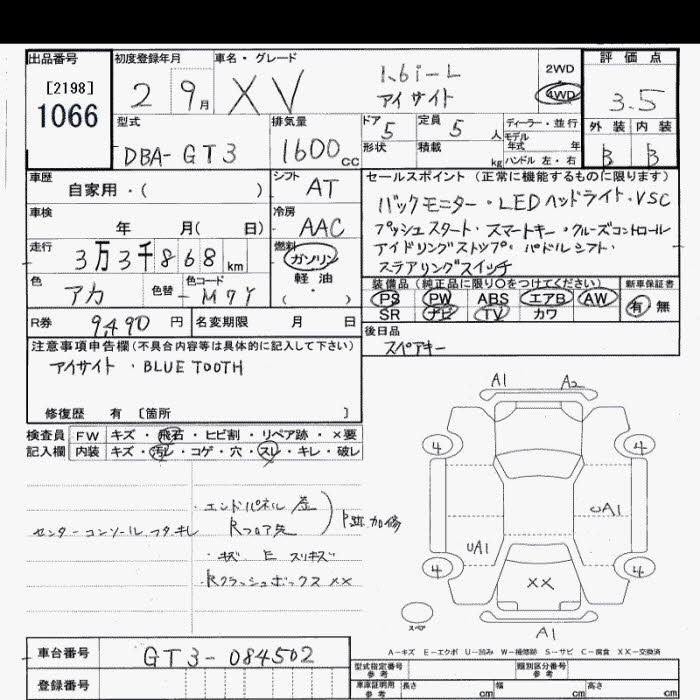 出品番号
[2198]
1066
初度登録年月
2 9月
車名・グレード
XV
1.6i-L
アイサイト
2WD
4WD
評価点
3.5
外装 内装
B B
型式
DBA-GT3
排気量
1600cc
ドア 5
定員 5人
形状
積載 kg
ディーラー・並行
モデル年式 年
ハンドル 左・右
車歴
自家用・( )
シフト AT
車検
年 月( 日)
冷房 AAC
走行
3万3千868km
燃料
ガソリン
軽油
( ・ )
色
アカ
色替
色コード
M7Y
R券 9,490円
名変期限 月 日
セールスポイント(正常に機能するものに限ります)
バックモニター・LEDヘッドライト・VSC
プッシュスタート・スマートキー・クルーズコントロール
アイドリングストップ・パドルシフト・
ステアリングスイッチ
装備品(純正品に限り〇をつけてください)
PS PW ABS エアB AW
SR ナビ TV カワ
新車保証書
有 無
後日品
スペアキー
注意事項申告欄(不具合内容等は具体的に記入して下さい)
アイサイト・BLUE TOOTH
修復歴 有 [箇所 ]
検査員記入欄
FW キズ・飛石・ヒビ割・リペア跡・×要
内装 キズ・汚レ・コゲ・穴・スレ・キレ・破レ
・エンドパネル
センターコンソールフタキレ
Rフロア先
・キズ E スリキズ
・Rクラッシュボックス××
A1 A2
4 4
UA1
UA1
4 4
××
スペア
A1
A-キズ E-エクボ U-凹み W-補修跡 S-サビ C-腐食 XX-交換済
車台番号
GT3-084502
登録番号
型式指定番号 参考
類別区分番号 参考
車庫証明用 参考
長さ cm 幅 cm 高さ cm